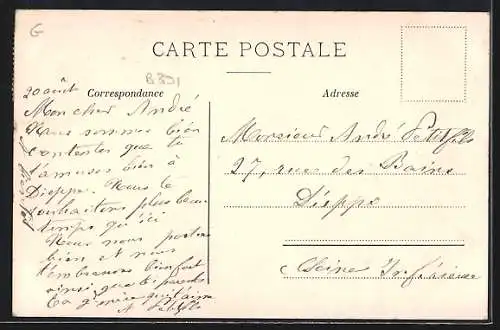 G
CARTE POSTALE
B391
Correspondance
Adresse
20 août
Mon cher André
Nous sommes bien
contentes que tu
t'amuses bien à
Dieppe. Nous te
souhaitons plus beau
temps qu'ici
Nous nous portons
bien et nous
t'embrassons bien fort
ainsi que tes parents
Ta qui t'aime
Monsieur André Petitfils
27, rue des Bains
Dieppe
Seine Inférieure